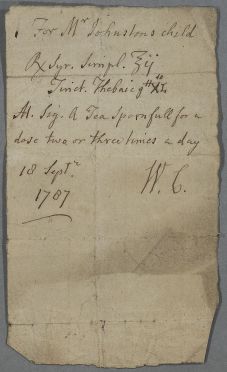 For Mr Johnstons child
℞ Syr. Simpl. ℥ij
Tinct. Thebaic gtt XL
M. Sig. A Tea Spoonfull for a
dose two or three times a day
18 Septr
1787
W. C.